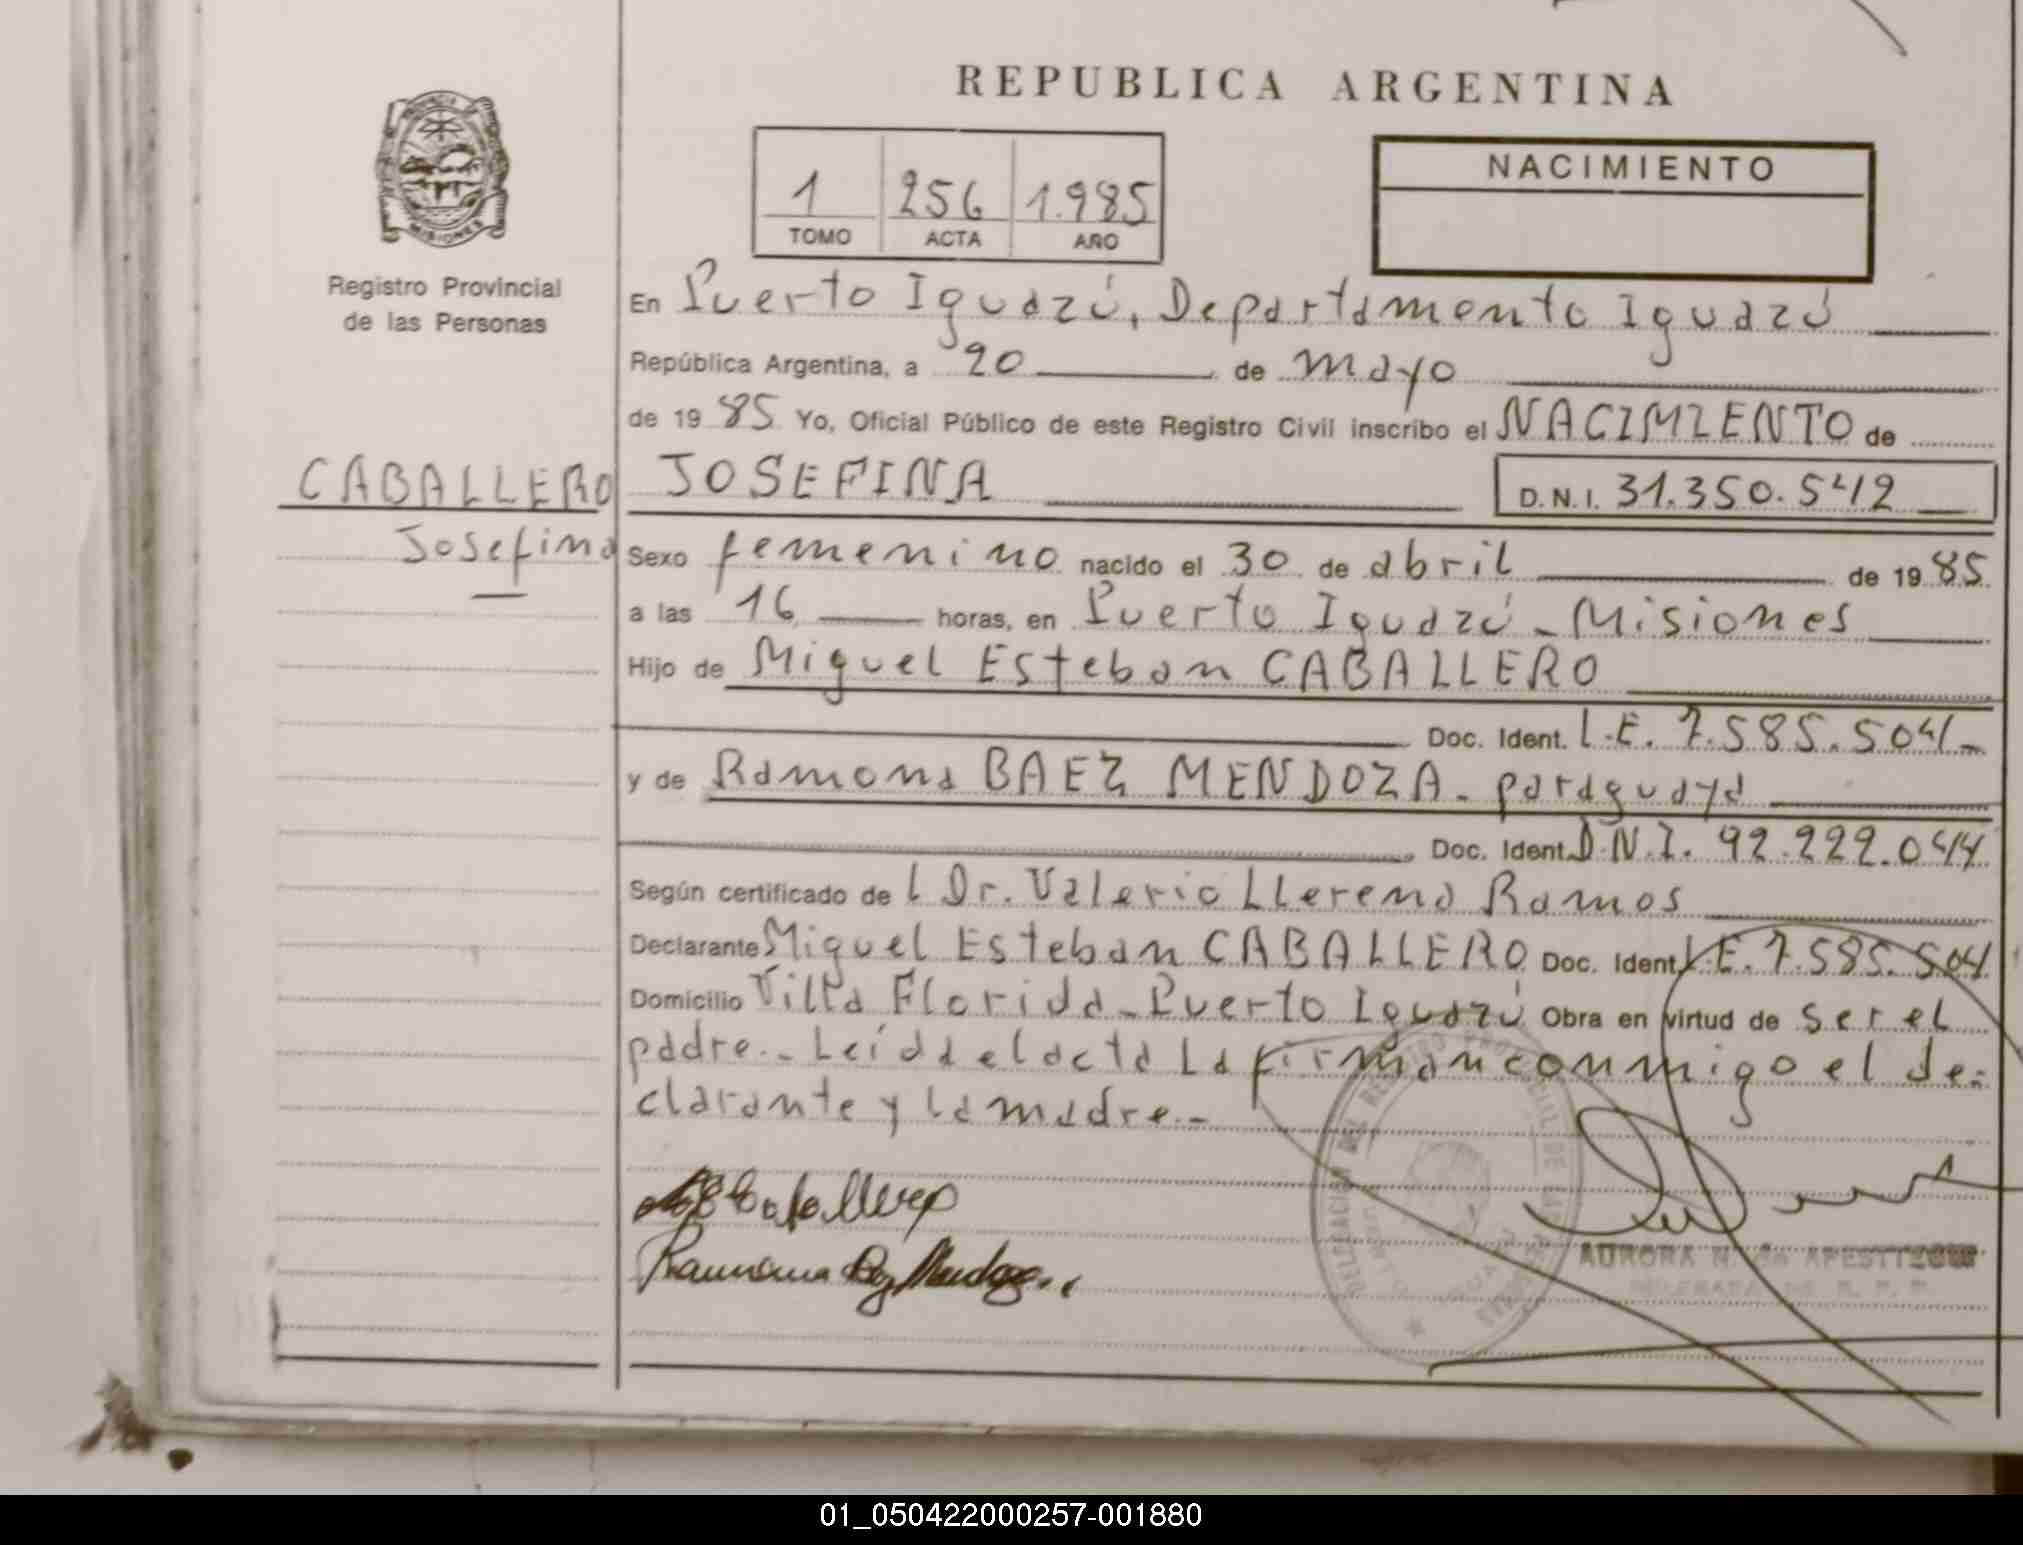 REPUBLICA ARGENTINA
PROVINCIA
MISIONES
Registro Provincial
de las Personas
1 256 1.985
TOMO ACTA AÑO
NACIMIENTO
En Puerto Iguazú, Departamento Iguazú
República Argentina, a 20 de mayo
de 19 85 Yo, Oficial Público de este Registro Civil inscribo el NACIMIENTO de
CABALLERO
Josefina
JOSEFINA D.N.I. 31.350.542
Sexo femenino nacido el 30 de abril de 19 85
a las 16 horas, en Puerto Iguazú - Misiones
Hijo de Miguel Esteban CABALLERO
Doc. Ident. L.E. 7.585.504-
y de Ramona BAEZ MENDOZA - paraguaya
Doc. Ident. D.N.I. 92.222.044
Según certificado de l Dr. Valerio Llerena Ramos
Declarante Miguel Esteban CABALLERO Doc. Ident. L.E. 7.585.504
Domicilio Villa Florida - Puerto Iguazú Obra en virtud de ser el
padre.- Leída el acta la firman conmigo el de-
clarante y la madre.-
Caballero
Ramona Baez Mendoza
AURORA N.
DELEGADA DE R. P. P.
01_050422000257-001880